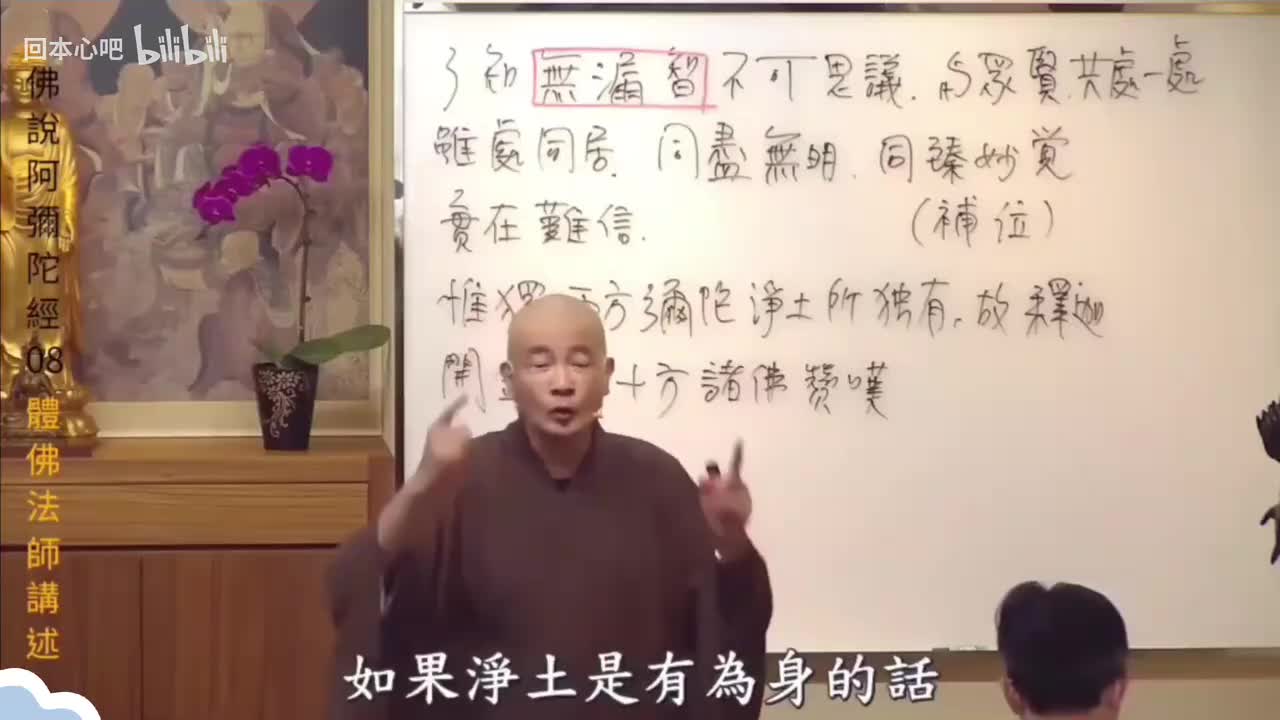 回本心吧 bilibili
佛說阿彌陀經 08 體佛法師講述
了知無漏智不可思議.与眾賢共處一處
雖處同居.同盡無明.同臻妙覚
實在難信.(補位)
惟獨 方彌陀淨土所独有.故釋迦
開 十方諸佛赞嘆
如果淨土是有為身的話